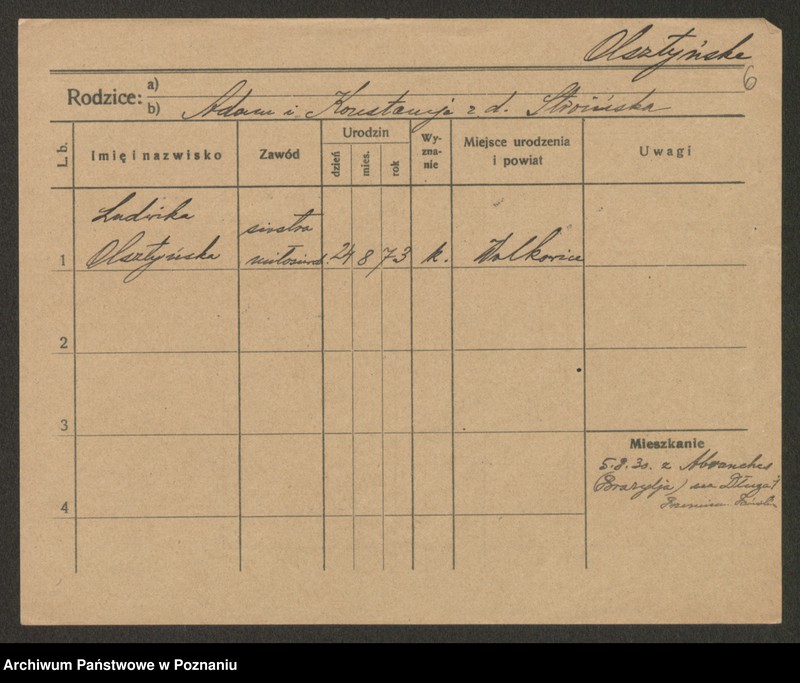 Olsztyńska
6
Rodzice: a)
b) Adam i Konstancja z d. Stroińska
L. b.
Imię i nazwisko
Zawód
Urodzin
dzień
mies.
rok
Wy-
zna-
nie
Miejsce urodzenia
i powiat
Uwagi
Ludwika
siostra
1 Olsztyńska miłosierd. 24 8 73 k. Wolkowice
2
3
4
Mieszkanie
5.8.30. z Abranches
(Brazylja) Długa
Archiwum Państwowe w Poznaniu